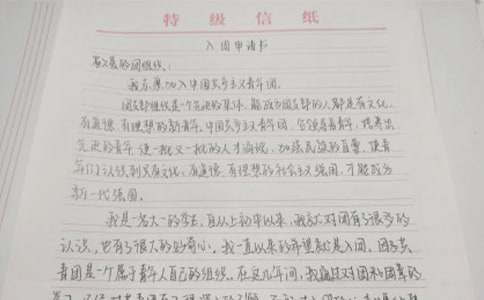 特级信纸
入团申请书
敬爱的团组织：
我志愿加入中国共产主义青年团。
团支部组织是一个先进的集体，能成为团支部的人都是有文化、
有道德、有理想的新青年。中国共产主义青年团，引领着青年，培养出
先进的青年，使一批又一批的人才涌现，加强民族的自尊，使青
年们认识到只有文化、有道德、有理想的社会主义强国，才能成为
新一代强国。
我是一名大一的学生，自从上初中以来，我就对团有了很多的
认识，也有了很大的好奇心。我一直以来的希望就是入团。团是共
青团是一个属于青年人自己的组织。在这几年间，我通过对团和团章的